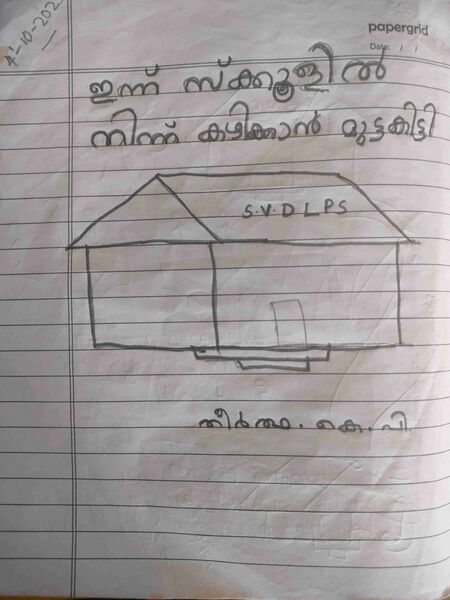 4-10-202
papergrid
Date: / /
ഇന്ന് സ്ക്കൂളിൽ
നിന്ന് കഴിക്കാൻ മുട്ടകിട്ടി
S.V.D L P S
തീർത്ഥ. കെ. പി.